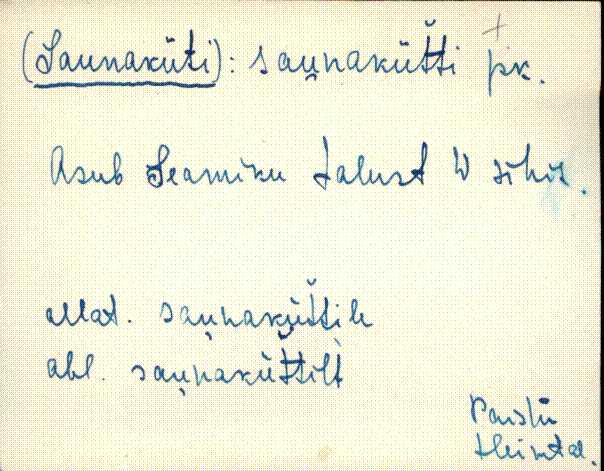 (Saunaküti): sau̬nakütti pk.
Asub Seamiku talust W sihis.
allat. sau̬naküttile
abl. sau̬naküttilt
Paistu
Heimtal.